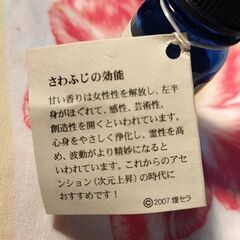 さわふじの効能
甘い香りは女性性を解放し、左半
身がほぐれて、感性、芸術性、
創造性を開くといわれています。
心身をやさしく浄化し、霊性を高
め、波動がより精妙になると
いわれています。これからのアセ
ンション（次元上昇）の時代に
おすすめです！
©2007 煌セラ